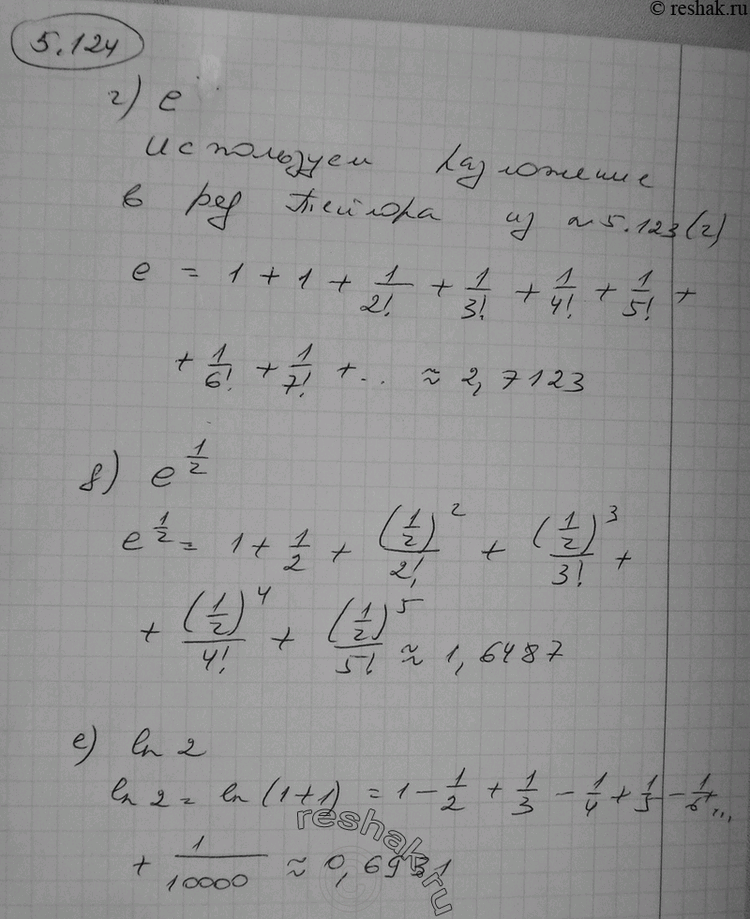 © reshak.ru
5.124
г) e
Используем разложение
в ряд Тейлора из №5.123(г)
e = 1 + 1 + 1/2! + 1/3! + 1/4! + 1/5! +
+ 1/6! + 1/7! + ... ≈ 2,7123
д) e^(1/2)
e^(1/2) = 1 + 1/2 + (1/2)^2/2! + (1/2)^3/3! +
+ (1/2)^4/4! + (1/2)^5/5! ≈ 1,6487
е) ln 2
ln 2 = ln (1+1) = 1 - 1/2 + 1/3 - 1/4 + 1/5 - 1/6 + ...
+ 1/10000 ≈ 0,6931
reshak.ru